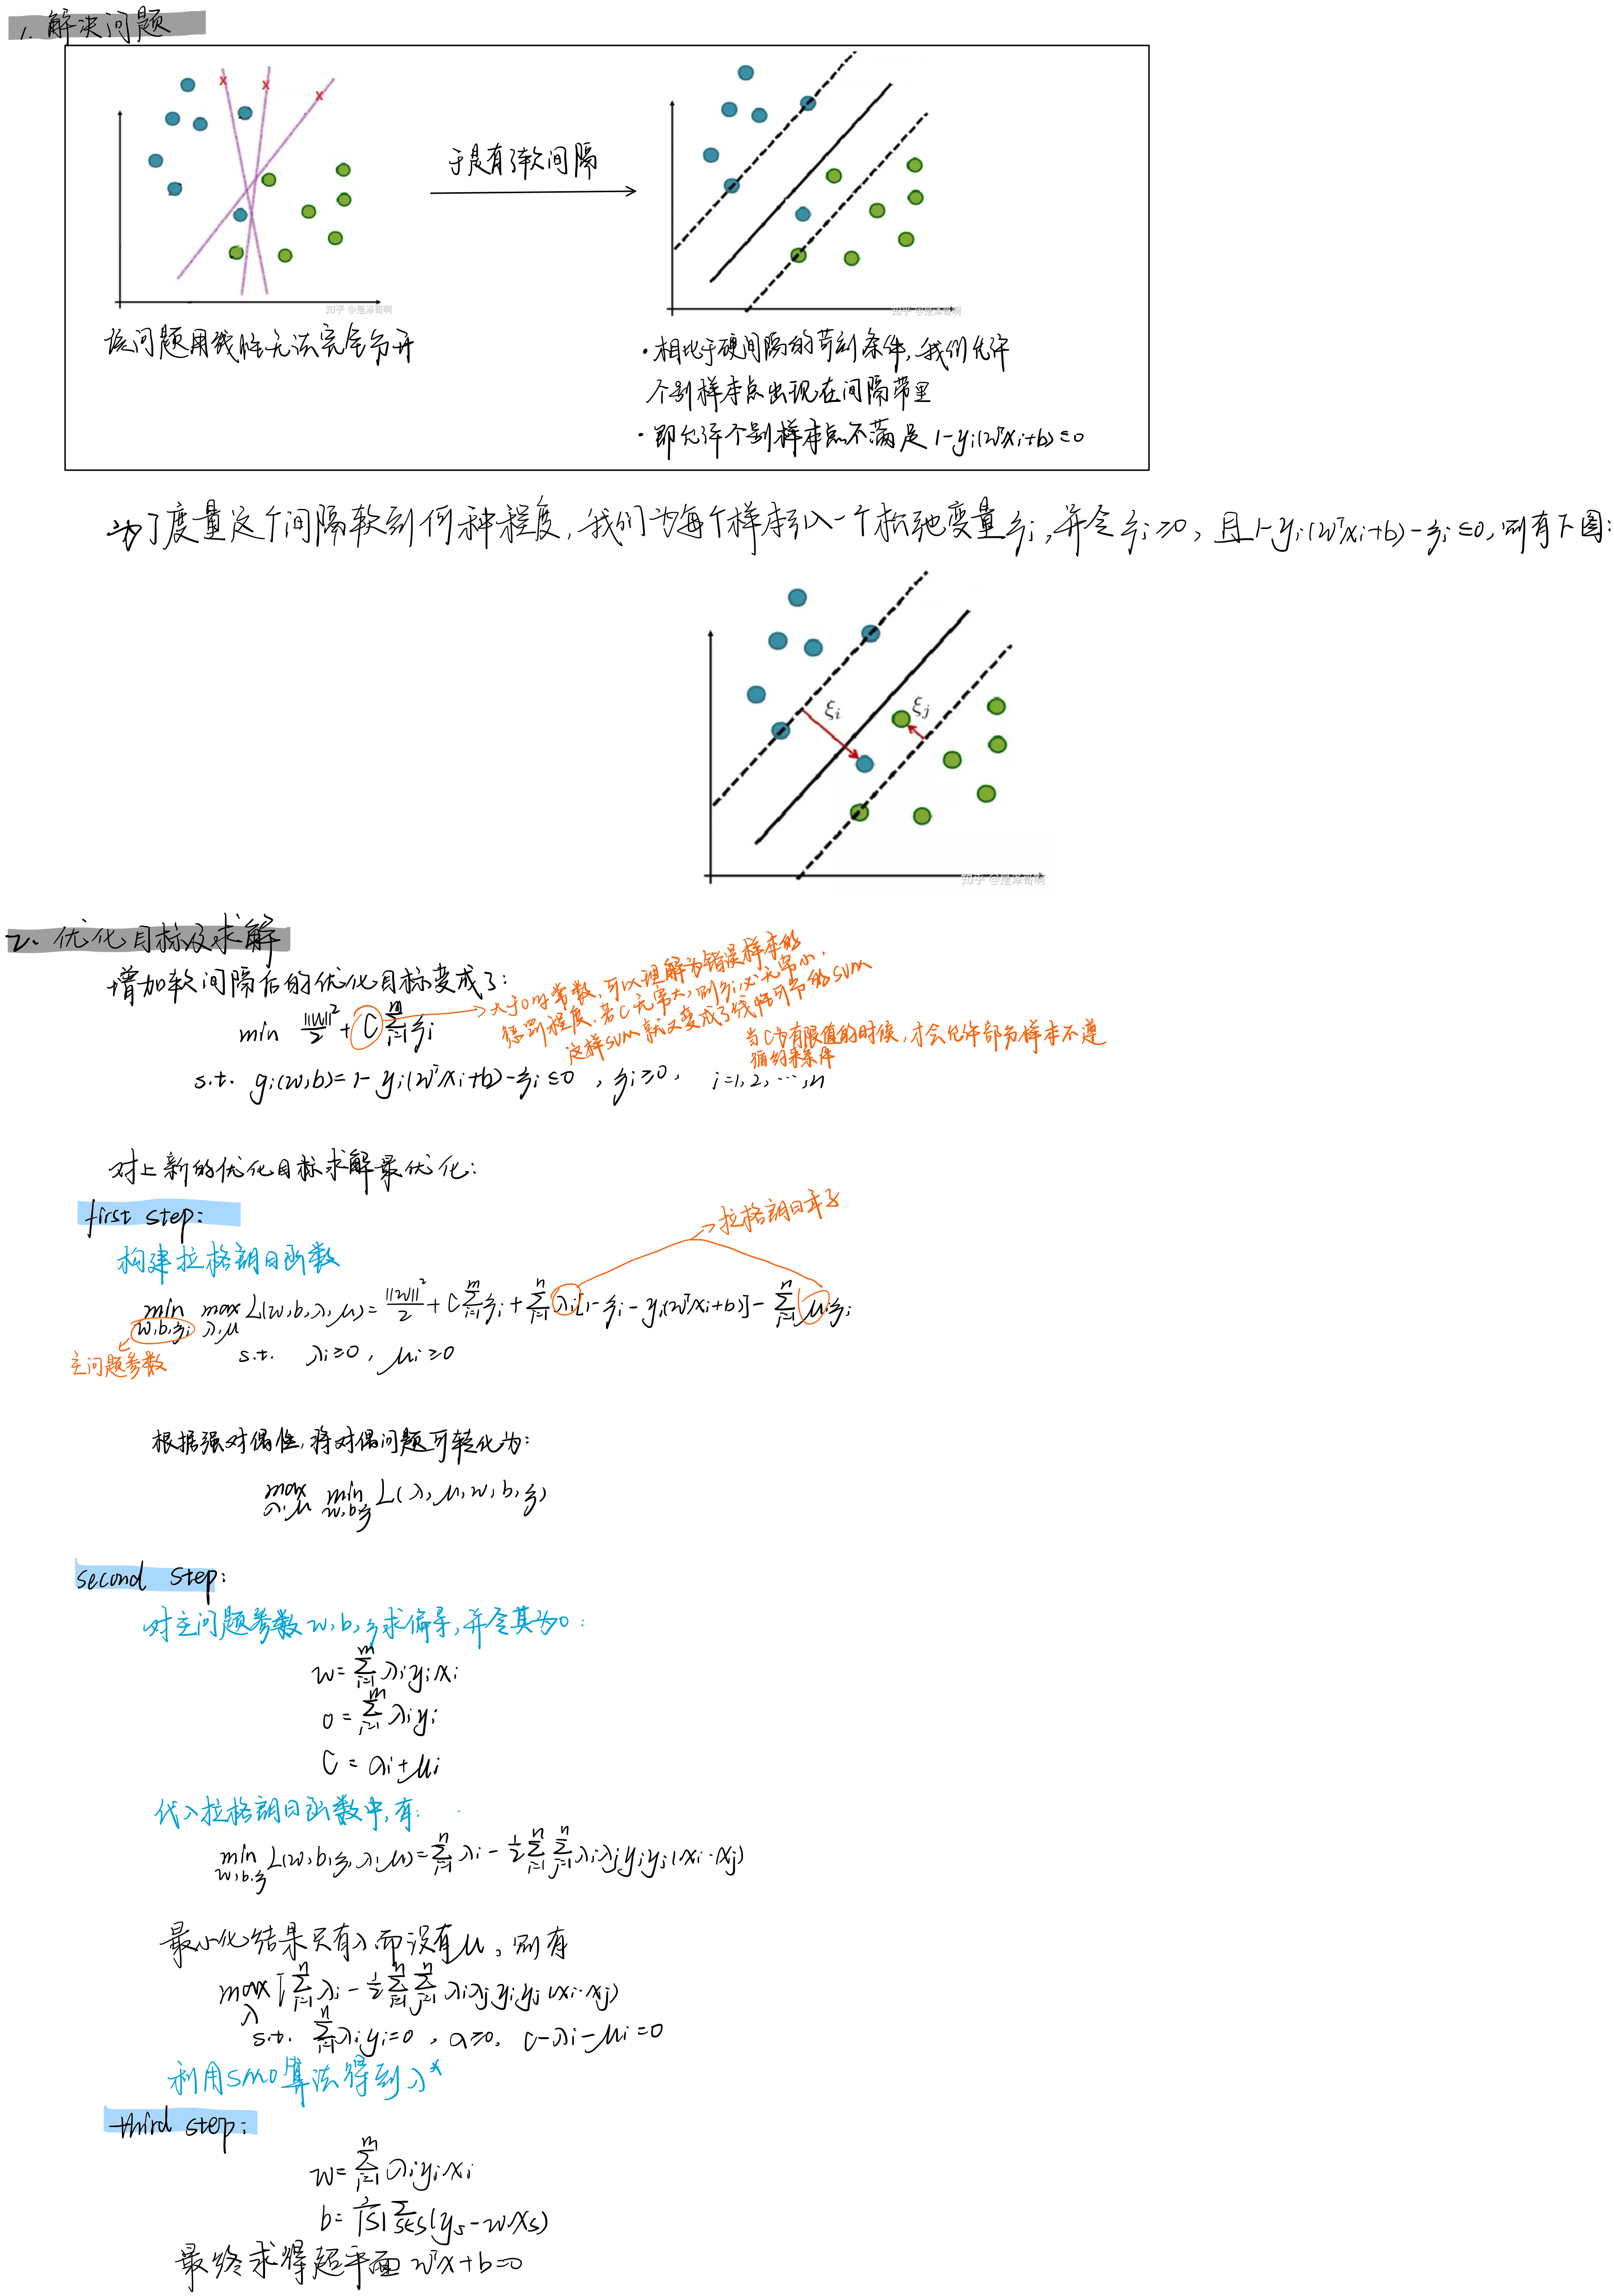 1. 解决问题
x x x
于是有了软间隔
知乎 @是泽哥啊
知乎 @是泽哥啊
该问题用线性无法完全分开
·相比于硬间隔的苛刻条件,我们允许
个别样本点出现在间隔带里
·即允许个别样本点不满足 1-yi(wᵀxi+b)≤0
为了度量这个间隔软到何种程度,我们为每个样本引入一个松弛变量ξi,并令ξi≥0,且1-yi(wᵀxi+b)-ξi≤0,则有下图:
ξi ξj
知乎 @是泽哥啊
2. 优化目标及求解
增加软间隔后的优化目标变成了:
min ||w||²/2 + C Σ_{i=1}^{m} ξi
→大于0的常数,可以理解为错误样本的
惩罚程度.若C无穷大,则ξi必无穷小,
这样SVM就又变成了线性可分的SVM
当C为有限值的时候,才会允许部分样本不遵
循约束条件
s.t. gi(w,b)=1-yi(wᵀxi+b)-ξi≤0 , ξi≥0, i=1,2,…,n
对上新的优化目标求解最优化:
first step:
→拉格朗日乘子
构建拉格朗日函数
min_{w,b,ξi} max_{λ,μ} L(w,b,λ,μ)= ||w||²/2 + C Σ_{i=1}^{m} ξi + Σ_{i=1}^{n} λi[1-ξi-yi(wᵀxi+b)] - Σ_{i=1}^{n} μiξi
主问题参数
s.t. λi≥0 , μi≥0
根据强对偶性,将对偶问题可转化为:
max_{λ,μ} min_{w,b,ξ} L(λ,μ,w,b,ξ)
second step:
对主问题参数w,b,ξ求偏导,并令其为0:
w= Σ_{i=1}^{m} λiyixi
0= Σ_{i=1}^{m} λiyi
C = λi+μi
代入拉格朗日函数中,有:
min_{w,b,ξ} L(w,b,ξ,λ,μ)= Σ_{i=1}^{n} λi - 1/2 Σ_{i=1}^{n} Σ_{j=1}^{n} λiλjyiyj(xi·xj)
最小化结果只有λ而没有μ,则有
max_{λ} [Σ_{i=1}^{n} λi - 1/2 Σ_{i=1}^{n} Σ_{j=1}^{n} λiλjyiyj(xi·xj)
s.t. Σ_{i=1}^{n} λiyi=0 , λ≥0, C-λi-μi=0
利用SMO算法得到λ*
third step:
w= Σ_{i=1}^{m} λiyixi
b= 1/|S| Σ_{s∈S}(ys-wxs)
最终求得超平面 wᵀx+b=0